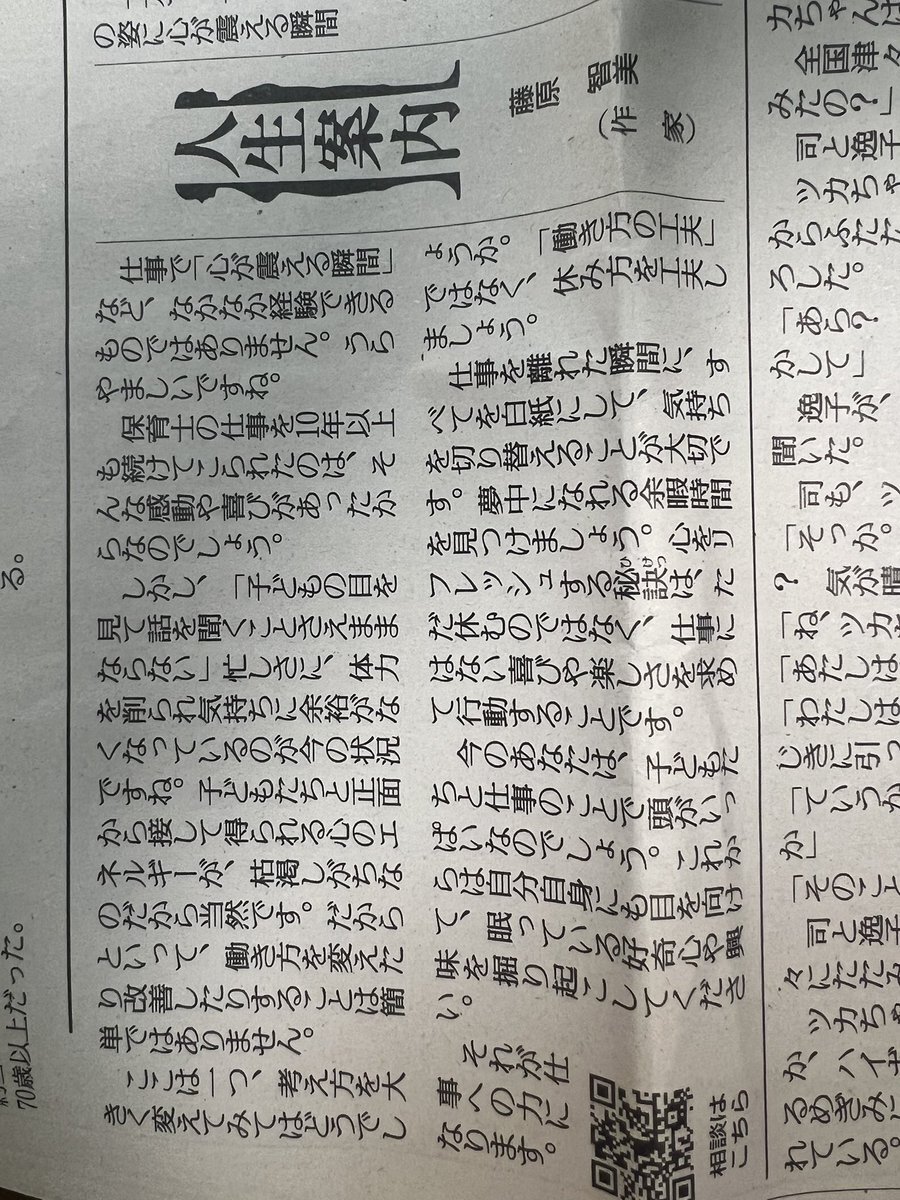 の姿に心が震える瞬間
人生案内
藤原 智美
（作家）
仕事で「心が震える瞬間」
など、なかなか経験できる
ものではありません。うら
やましいですね。
保育士の仕事を10年以上
も続けてこられたのは、そ
んな感動や喜びがあったか
らなのでしょう。
しかし、「子どもの目を
見て話を聞くことさえまま
ならない」忙しさに、体力
を削られ気持ちに余裕がな
くなっているのが今の状況
ですね。子どもたちと正面
から接して得られる心のエ
ネルギーが、枯渇しがちな
のだから当然です。だから
といって、働き方を変えた
り改善したりすることは簡
単ではありません。
ここは一つ、考え方を大
きく変えてみてはどうでし
ょうか。「働き方の工夫」
ではなく、休み方を工夫し
ましょう。
仕事を離れた瞬間に、す
べてを白紙にして、気持ち
を切り替えることが大切で
す。夢中になれる余暇時間
を見つけましょう。心をリ
フレッシュする秘訣は、た
だ休むのではなく、仕事に
はない喜びや楽しさを求め
て行動することです。
今のあなたは、子どもた
ちと仕事のことで頭がいっ
ぱいなのでしょう。これか
らは自分自身にも目を向け
て、眠っている好奇心や興
味を掘り起こしてくださ
い。
それが仕
事への力に
なります。
相談は
こちら
る。
70歳以上だった。
カちゃんは
全国津々
みたの？」
司と逸子
ツカちゃ
からふたた
ろした。
「あら？
かして」
逸子が、
聞いた。
司も、ツ
「そっか。
？ 気が晴
「ね、ツカ
「あたしは
「わたしは
じきに引っ
「ていうか
か」
「そのこと
司と逸子
々にたたる
ツカちゃ
か、ハイギ
るめぎみに
れている。